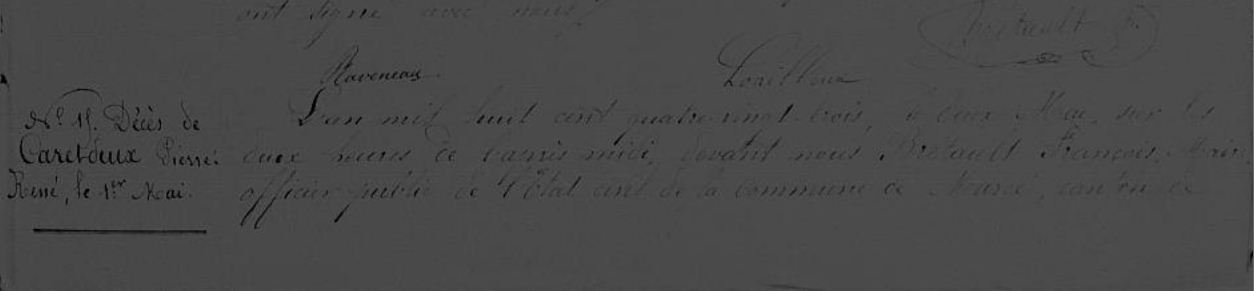 ont signé avec nous
Bretault F.
Raveneau
Lorilleux
N.º 15. Décès de
Caretdeux Pierre.
René, le 1er Mai.
L'an mil huit cent quatre-vingt trois, le deux Mai, sur les
deux heures de l'après midi, devant nous Bretault François, Maire
officier public de l'Etat civil de la commune de Marcé, canton de